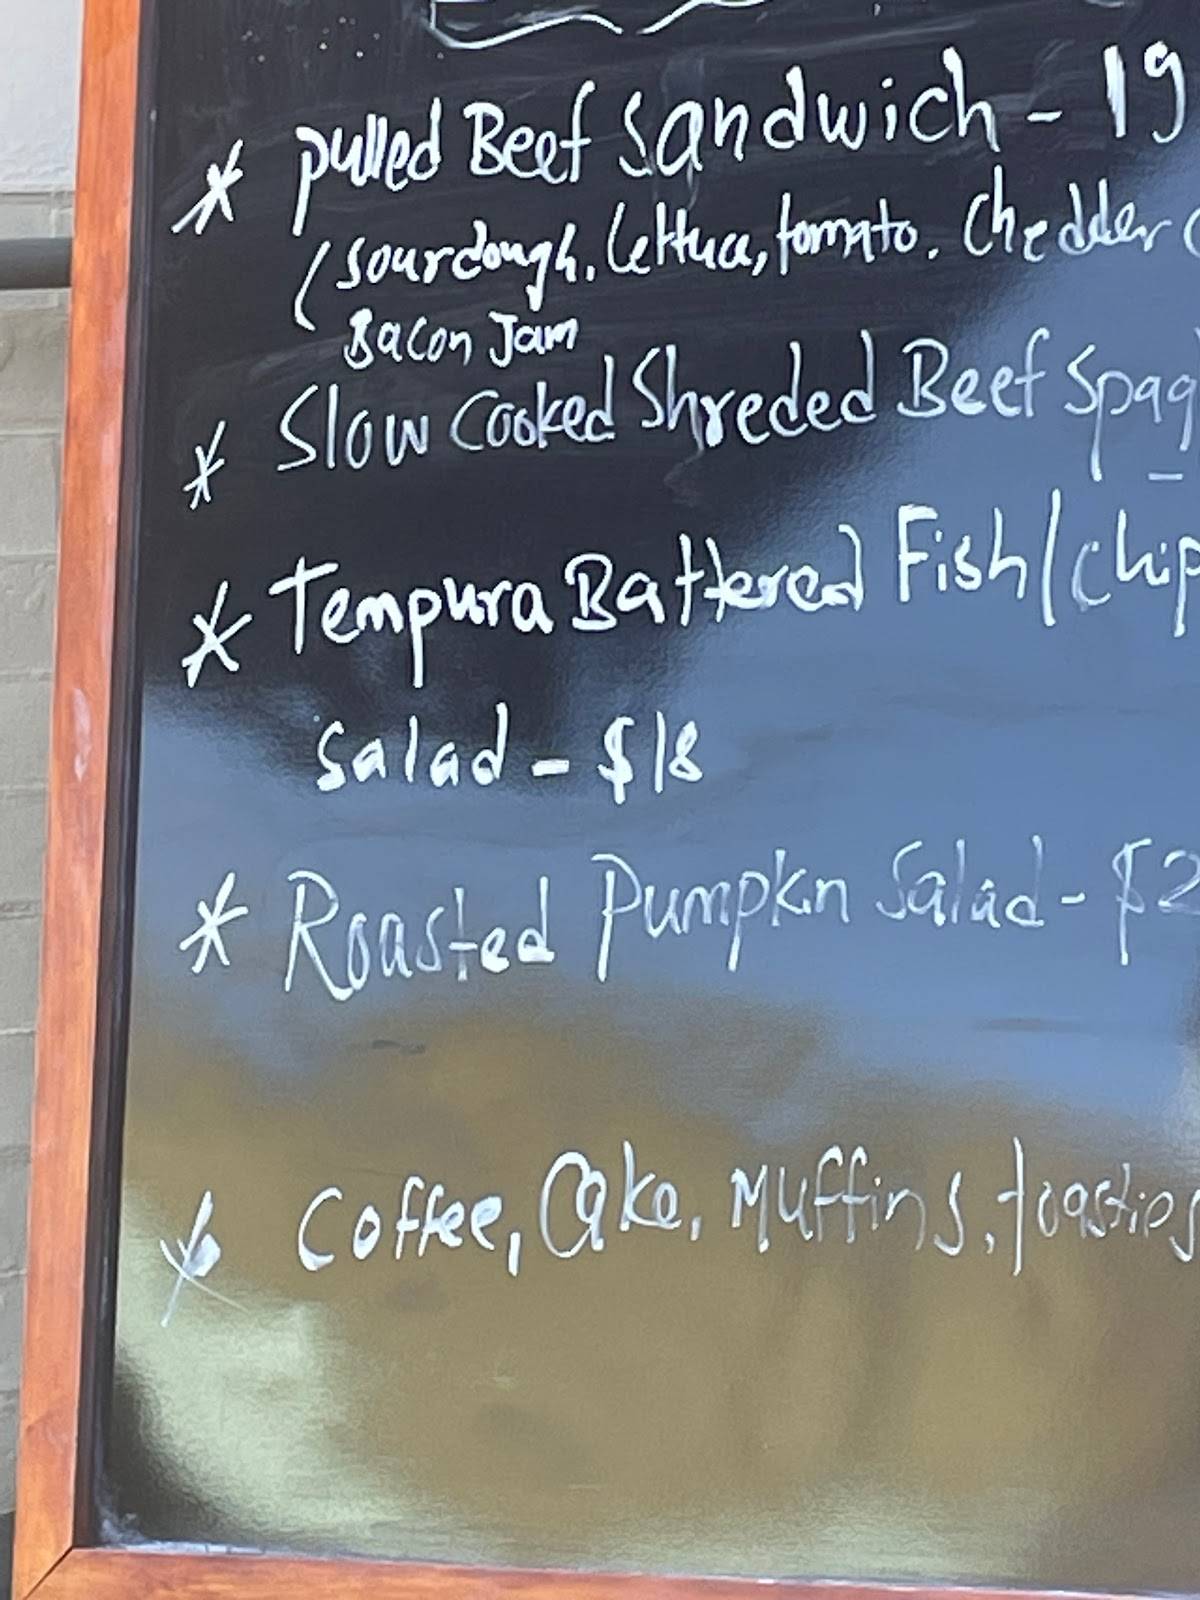 * Pulled Beef Sandwich - 19
(Sourdough, lettuce, tomato. Chedder
Bacon Jam
* Slow Cooked Shreded Beef Spag
* Tempura Battered Fish/Chip
Salad - $18
* Roasted Pumpkin Salad - $2
* Coffee, Cake, Muffins, toasties